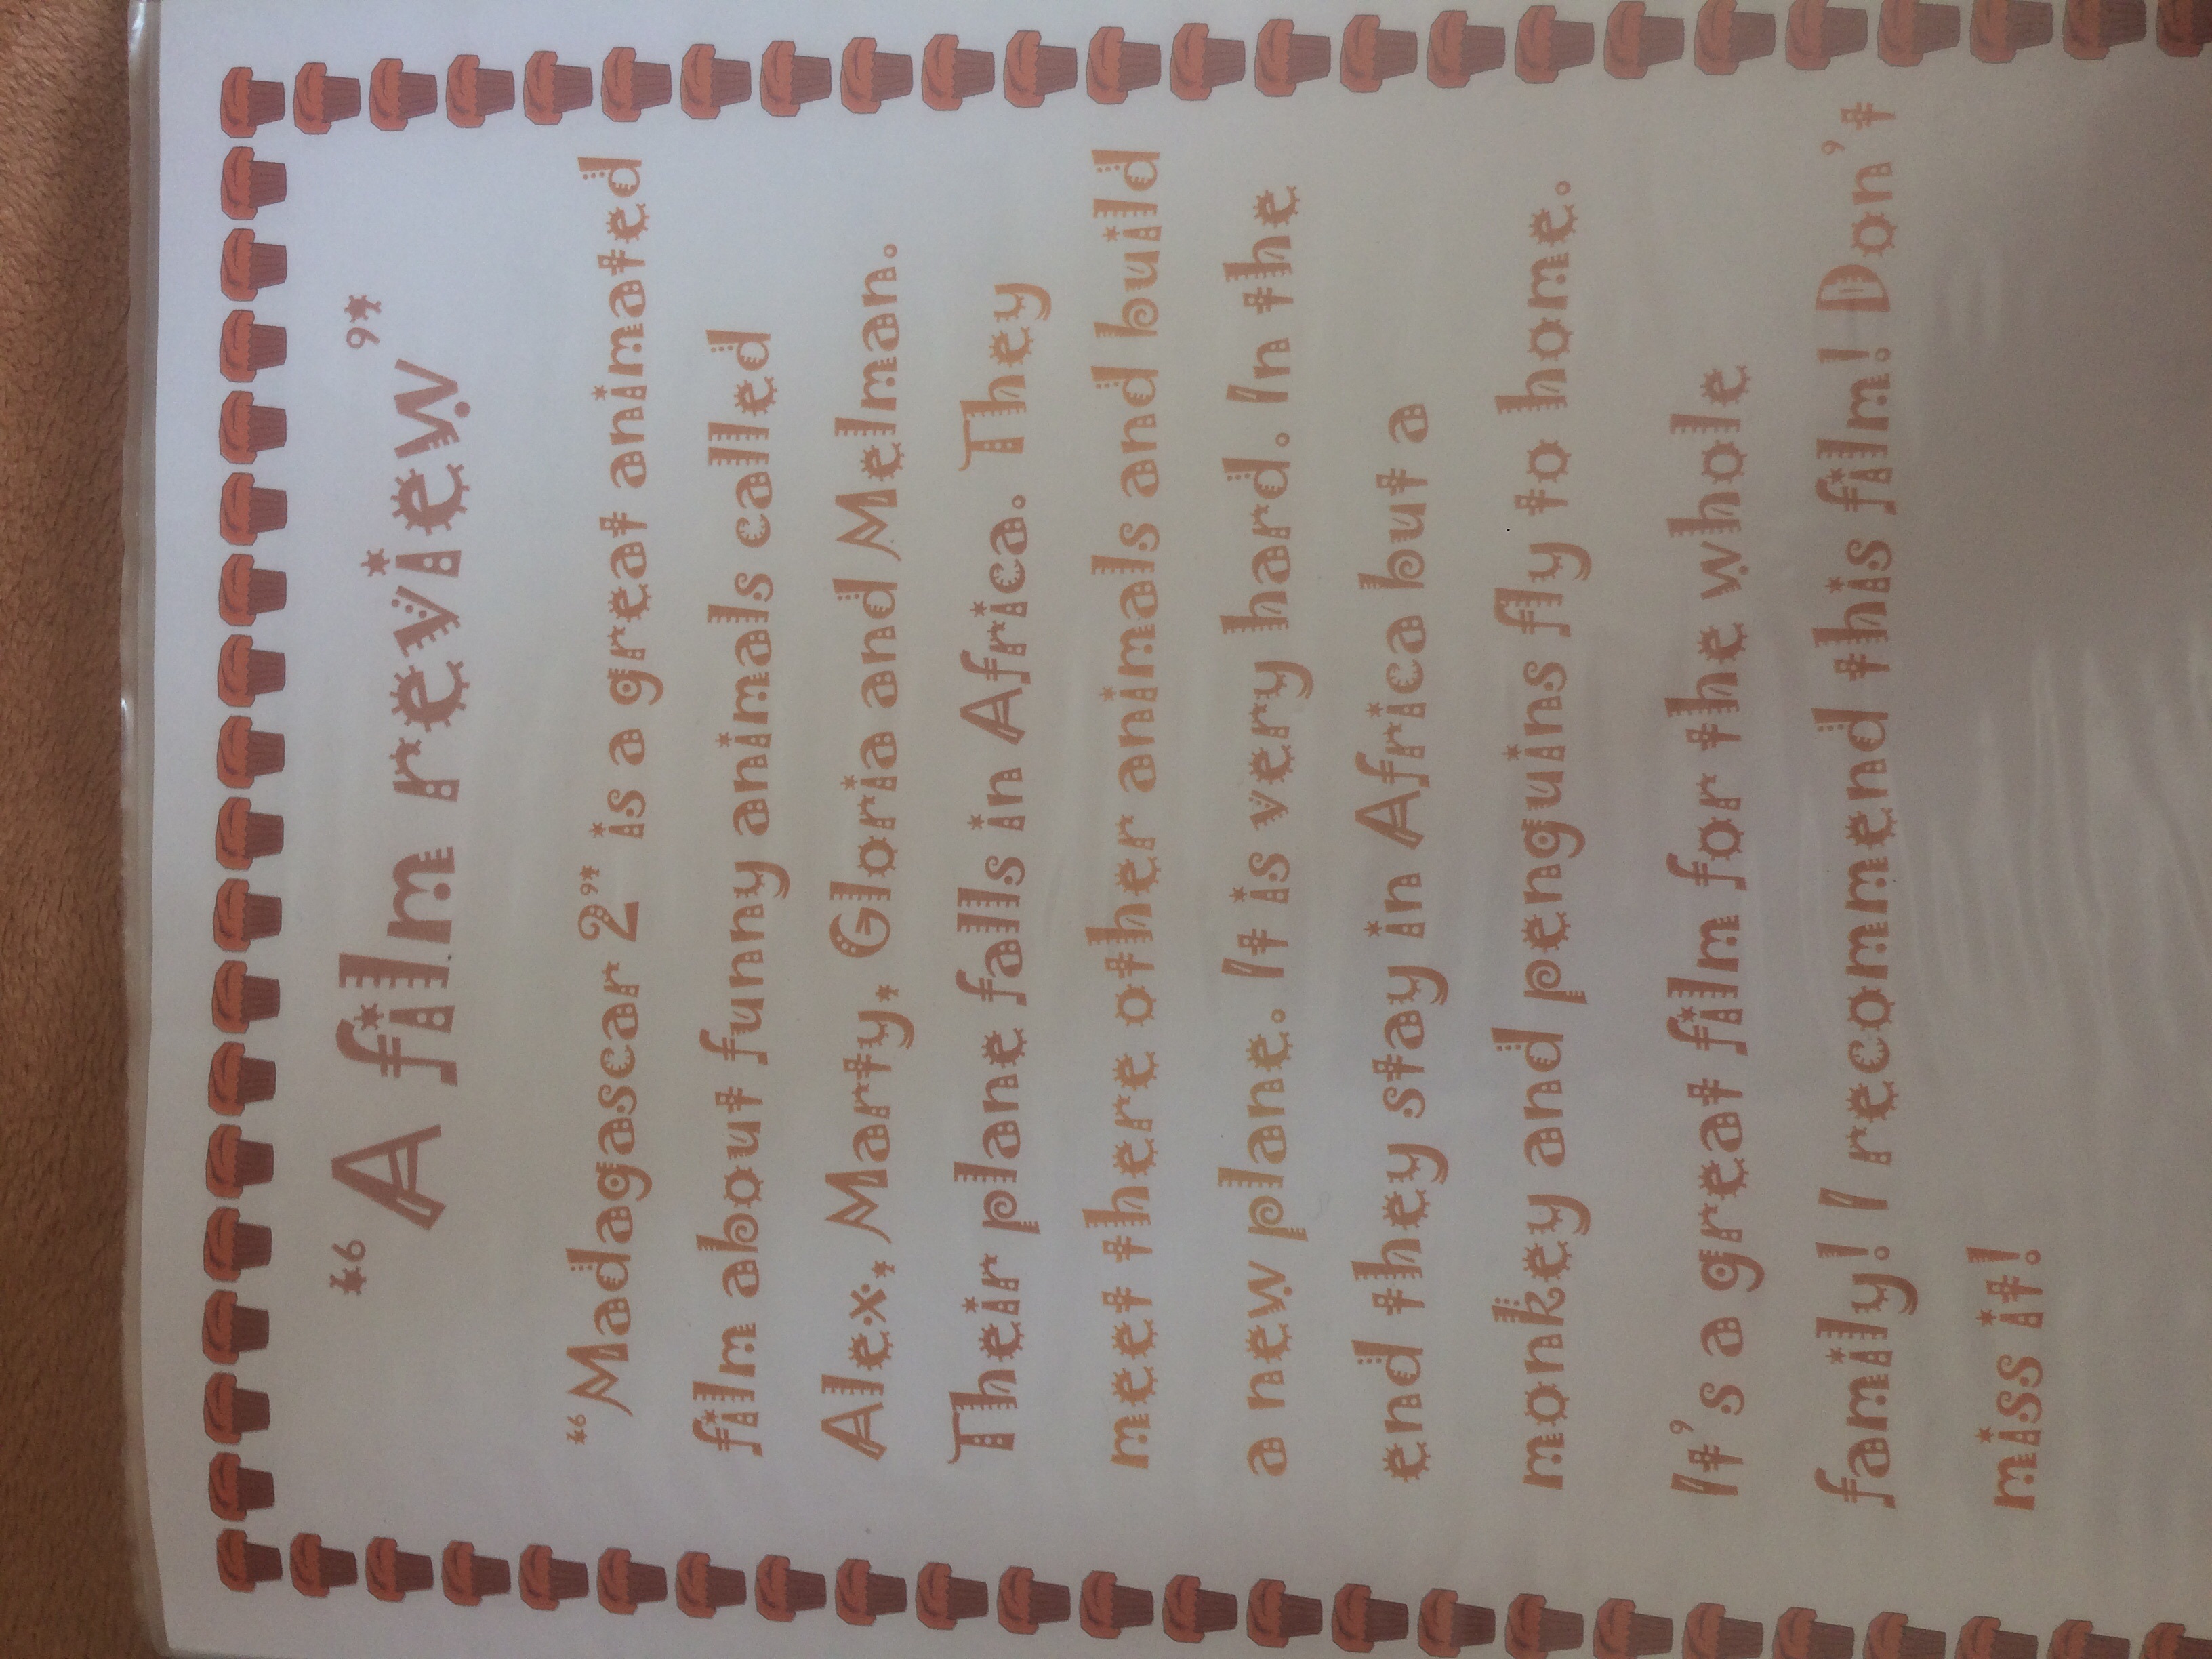 "A film review"
"Madagascar 2" is a great animated
film about funny animals called
Alex, Marty, Gloria and Melman.
Their plane falls in Africa. They
meet there other animals and build
a new plane. It is very hard. In the
end they stay in Africa but a
monkey and penguins fly to home.
It's a great film for the whole
family! I recommend this film! Don't
miss it!